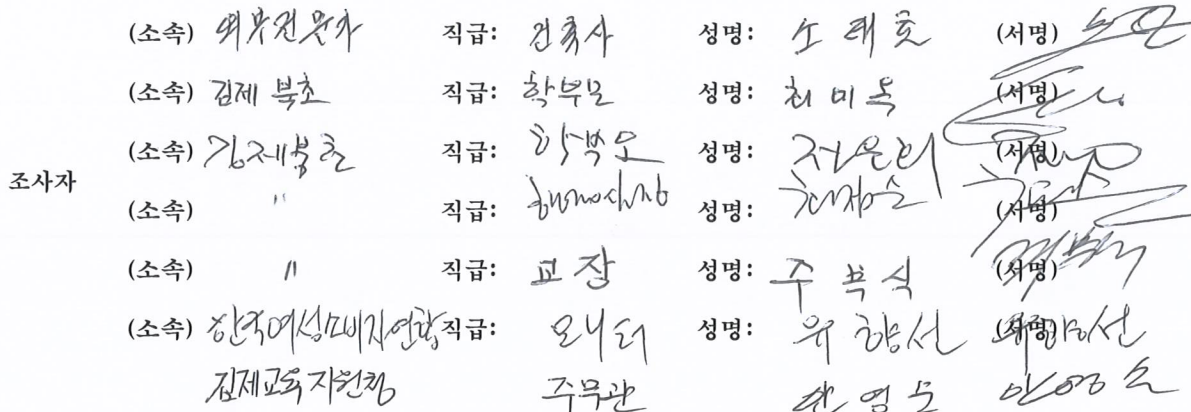 (소속) 외부전문가 직급: 건축사 성명: 소재호 (서명)
(소속) 김제 북초 직급: 학부모 성명: 최미옥 (서명)
(소속) 김제북초 직급: 학부모 성명: 전은희 (서명)
조사자
(소속) " 직급: 행정실장 성명: (서명)
(소속) " 직급: 교장 성명: 주복식 (서명)
(소속) 한국여성소비자연합 직급: 모니터 성명: 유향선 (서명)
김제교육지원청 주무관 안영순 안영순